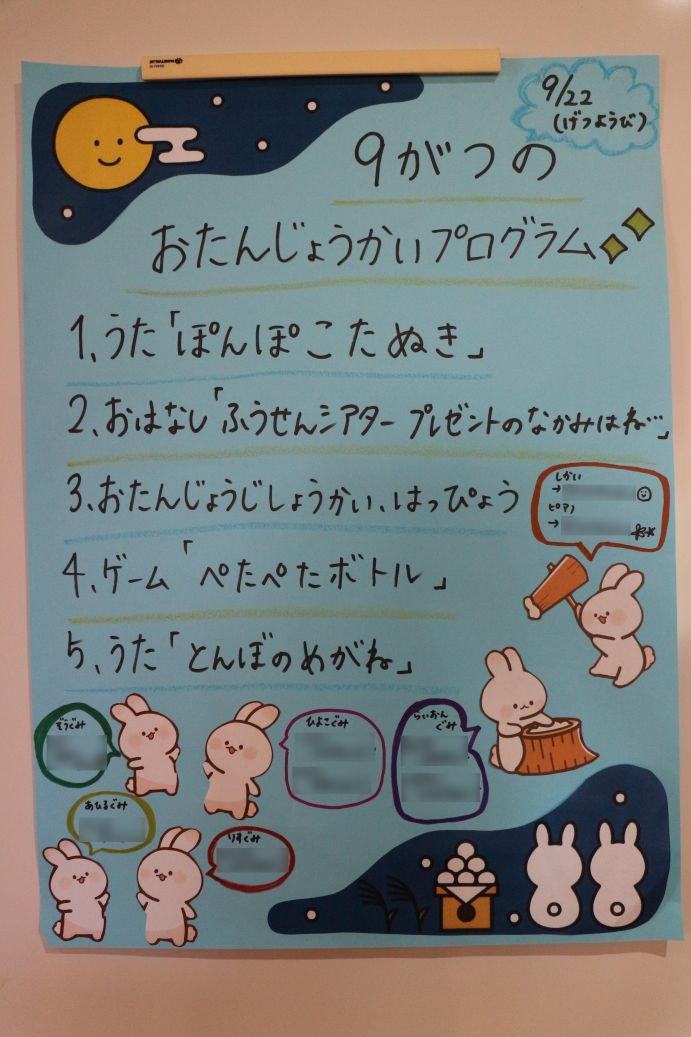 9/22
(げつようび)
9がつの
おたんじょうかいプログラム
1、うた「ぽんぽこたぬき」
2、おはなし「ふうせんシアター プレゼントのなかみはね…」
3、おたんじょうじしょうかい、はっぴょう
しかい
→
ピアノ
→
4、ゲーム「ぺたぺたボトル」
5、うた「とんぼのめがね」
ぞうぐみ
ひよこぐみ
らいおん
ぐみ
あひるぐみ
りすぐみ